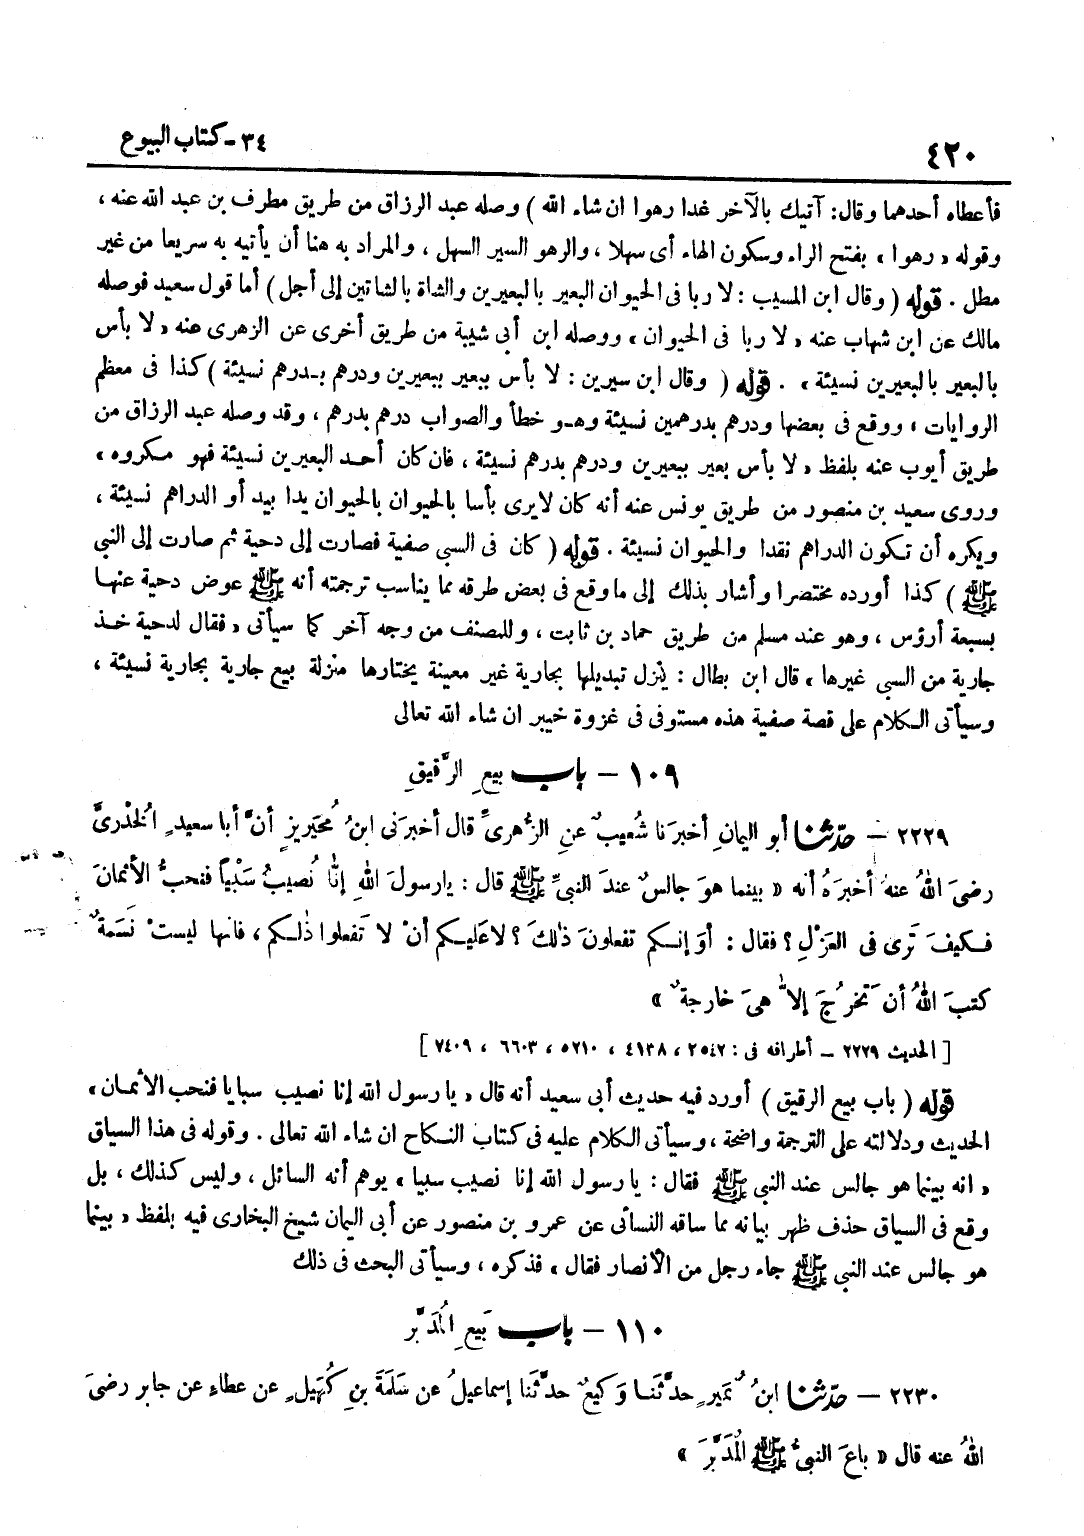 ٤٢٠
٣٤ - كتاب البيوع
فأعطاه أحدهما وقال: آتيك بالآخر غدا رهوا ان شاء الله ) وصله عبد الرزاق من طريق مطرف بن عبد الله عنه ،
وقوله « رهوا » بفتح الراء وسكون الهاء أى سهلا ، والرهو السير السهل ، والمراد به هنا أن يأتيه به سريعا من غير
مطل . قوله ( وقال ابن المسيب : لا ربا فى الحيوان البعير بالبعيرين والشاة بالشاتين إلى أجل ) أما قول سعيد فوصله
مالك عن ابن شهاب عنه « لا ربا فى الحيوان » ووصله ابن أبى شيبة من طريق أخرى عن الزهرى عنه « لا بأس
بالبعير بالبعيرين نسيئة » . قوله ( وقال ابن سيرين : لا بأس ببعير ببعيرين ودرهم بدرهم نسيئة ) كذا فى معظم
الروايات ، ووقع فى بعضها ودرهم بدرهمين نسيئة وهو خطأ والصواب درهم بدرهم ، وقد وصله عبد الرزاق من
طريق أيوب عنه بلفظ « لا بأس بعير ببعيرين ودرهم بدرهم نسيئة ، فان كان أحد البعيرين نسيئة فهو مكروه »
وروى سعيد بن منصور من طريق يونس عنه أنه كان لا يرى بأسا بالحيوان بالحيوان يدا بيد أو الدراهم نسيئة ،
ويكره أن تكون الدراهم نقدا والحيوان نسيئة . قوله ( كان فى السبى صفية فصارت إلى دحية ثم صارت إلى النبى
ﷺ ) كذا أورده مختصرا وأشار بذلك إلى ما وقع فى بعض طرقه مما يناسب ترجمته أنه ﷺ عوض دحية عنها
بسبعة أرؤس ، وهو عند مسلم من طريق حماد بن ثابت ، وللمصنف من وجه آخر كما سيأتى « فقال لدحية خذ
جارية من السبى غيرها » قال ابن بطال : ينزل تبديلها بجارية غير معينة يختارها منزلة بيع جارية بجارية نسيئة ،
وسيأتى الكلام على قصة صفية هذه مستوفى فى غزوة خيبر ان شاء الله تعالى
١٠٩ - باب بيعِ الرَّقيقِ
٢٢٢٩ - حدّثنا أبو اليمانِ أخبرَنا شُعيبٌ عنِ الزُّهرىِّ قال أخبرَنى ابنُ مُحَيرِيزٍ أنَّ أبا سعيدٍ الخُدْرىَّ
رضىَ اللهُ عنهُ أخبرَهُ أنه « بينما هوَ جالسٌ عندَ النبىِّ ﷺ قال : يارسولَ اللهِ إنَّا نُصيبُ سَبْياً فنحبُّ الأثمانَ
فكيفَ تَرى فى العَزْلِ ؟ فقال : أوَ إنكم تفعلونَ ذٰلكَ ؟ لا عَليكم أنْ لا تَفعلوا ذٰلكم ، فانها ليستْ نَسَمةٌ
كتبَ اللهُ أن تَخرُجَ إلاَّ هىَ خارجةٌ »
[ الحديث ٢٢٢٩ - أطرافه فى : ٢٥٤٢ ، ٤١٣٨ ، ٥٢١٠ ، ٦٦٠٣ ، ٧٤٠٩ ]
قوله ( باب بيع الرقيق ) أورد فيه حديث أبى سعيد أنه قال « يا رسول الله إنا نصيب سبايا فنحب الأثمان »
الحديث ودلالته على الترجمة واضحة ، وسيأتى الكلام عليه فى كتاب النكاح ان شاء الله تعالى . وقوله فى هذا السياق
« انه بينما هو جالس عند النبى ﷺ فقال : يا رسول الله إنا نصيب سبيا » يوهم أنه السائل ، وليس كذلك ، بل
وقع فى السياق حذف ظهر بيانه مما ساقه النسائى عن عمرو بن منصور عن أبى اليمان شيخ البخارى فيه بلفظ « بينما
هو جالس عند النبى ﷺ جاء رجل من الأنصار فقال » فذكره ، وسيأتى البحث فى ذلك
١١٠ - باب بَيعِ المُدَبَّر
٢٢٣٠ - حدّثنا ابنُ نُميرٍ حدَّثنا وَكيعٌ حدَّثَنا إسماعيلُ عن سَلَمَةَ بنِ كُهَيلٍ عن عطاءٍ عن جابر رضىَ
اللهُ عنه قال « باعَ النبىُّ ﷺ المُدَبَّرَ »